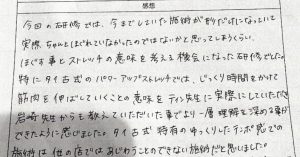 感想
今回の研修では、今までしていた施術が形だけになっていて
実際ちゃんとほぐれていなかったのではないかと思ってしまうくらい、
ほぐす事とストレッチの意味を考える機会になった研修でした。
特にタイ古式のパワーアップストレッチでは、じっくり時間をかけて
筋肉を伸ばしていくことの意味をティン先生に実際にしていただき
岩崎先生からも教えていただいた事でより一層理解を深める事が
できたように感じました。タイ古式特有のゆっくりしたテンポ感での
施術は他の店ではあじわうことのできない施術だと思しました。